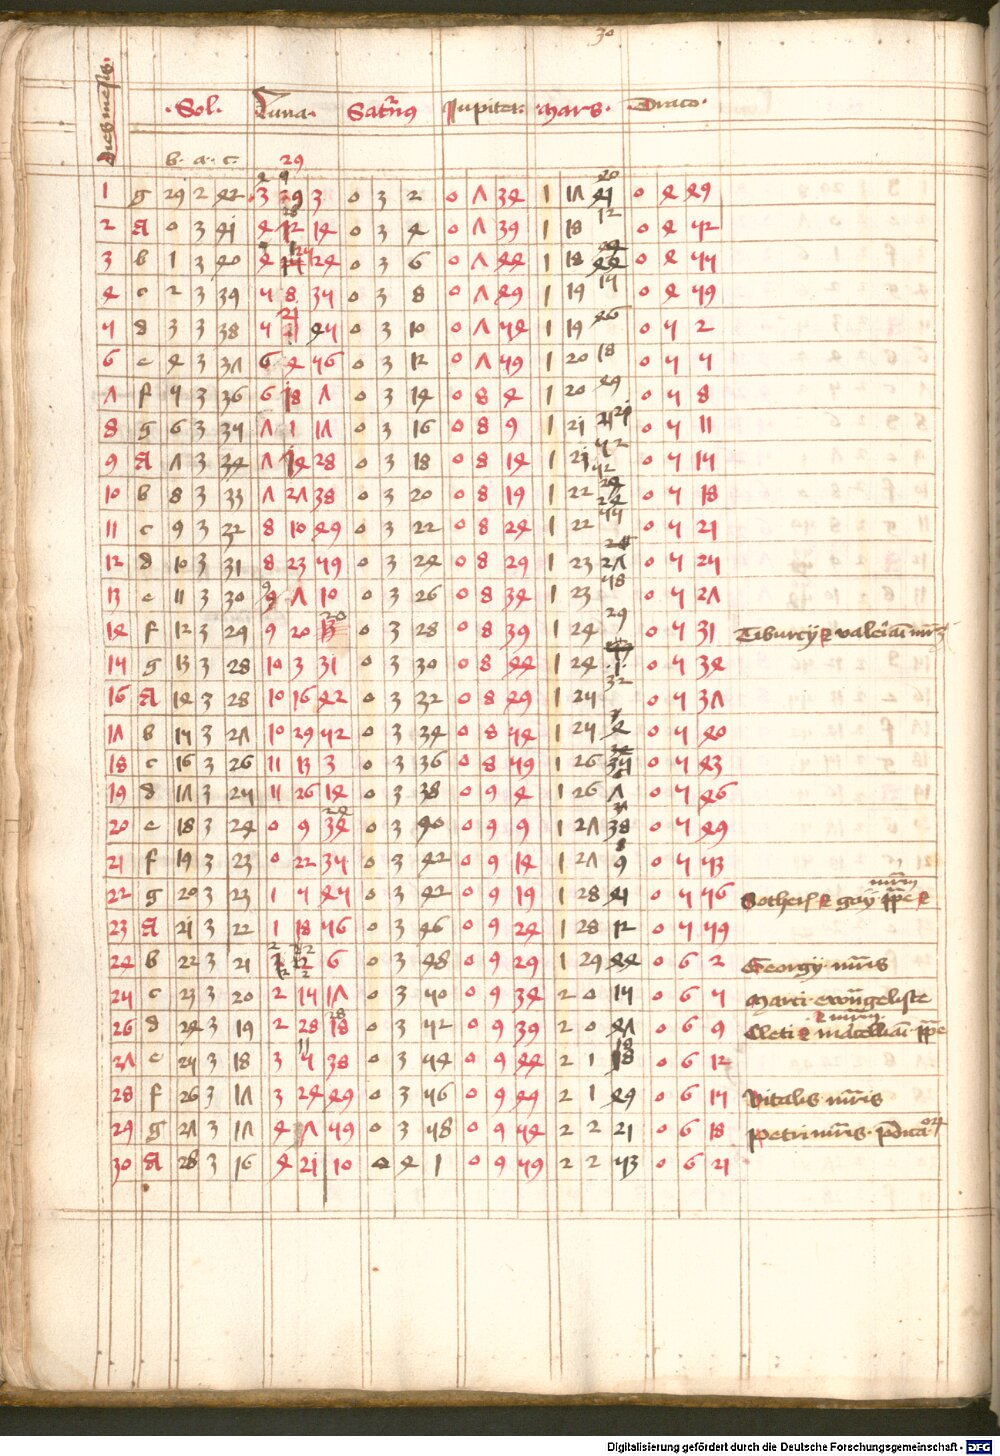 30
dies mēsis
· Sol · Luna · Satūnꝯ Jupiter · Mars · Draco ·
b · a · c · 29
1 g 29 2 42 3 3 0 3 2 0 7 34 1 17 0 4 49
2 A 0 3 41 4 12 14 0 3 4 0 7 39 1 18 12 0 4 52
3 b 1 3 40 4 24 0 3 6 0 7 44 1 18 0 4 55
4 c 2 3 39 5 8 35 0 3 8 0 7 49 1 19 15 0 4 59
5 d 3 3 38 5 21 45 0 3 10 0 7 54 1 19 46 0 5 2
6 e 4 3 37 6 4 56 0 3 12 0 7 59 1 20 18 0 5 5
7 f 5 3 36 6 18 7 0 3 14 0 8 4 1 20 49 0 5 8
8 g 6 3 35 7 1 17 0 3 16 0 8 9 1 21 0 5 11
9 A 7 3 34 7 14 28 0 3 18 0 8 14 1 21 52 0 5 15
10 b 8 3 33 7 27 38 0 3 20 0 8 19 1 22 24 0 5 18
11 c 9 3 32 8 10 49 0 3 22 0 8 24 1 22 55 0 5 21
12 d 10 3 31 8 23 59 0 3 24 0 8 29 1 23 27 0 5 24
13 e 11 3 30 9 7 10 0 3 26 0 8 34 1 23 58 0 5 27
14 f 12 3 29 9 20 20 0 3 28 0 8 39 1 24 29 0 5 31 Tiburcij ⁊ valeriāi mr̄m
15 g 13 3 28 10 3 31 0 3 30 0 8 44 1 24 0 5 34
16 A 14 3 28 10 16 42 0 3 32 0 8 49 1 25 32 0 5 37
17 b 15 3 27 10 29 52 0 3 34 0 8 54 1 25 4 0 5 40
18 c 16 3 26 11 13 3 0 3 36 0 8 59 1 26 35 0 5 43
19 d 17 3 25 11 26 14 0 3 38 0 9 4 1 26 7 0 5 46
20 e 18 3 24 0 9 24 0 3 40 0 9 9 1 27 38 0 5 49
21 f 19 3 23 0 22 35 0 3 42 0 9 14 1 27 9 0 5 53
22 g 20 3 23 1 5 45 0 3 42 0 9 19 1 28 41 0 5 56 Sotheris ⁊ gaij pp̄e ⁊ mr̄m
23 A 21 3 22 1 18 56 0 3 46 0 9 24 1 28 12 0 5 59
24 b 22 3 21 2 6 0 3 48 0 9 29 1 29 44 0 6 2 Georgij mr̄is
25 c 23 3 20 2 15 17 0 3 50 0 9 34 2 0 15 0 6 5 Marci ewāngeliste
26 d 24 3 19 2 28 28 0 3 52 0 9 39 2 0 47 0 6 9 Cleti ⁊ marcelliāi pp̄e ⁊ mr̄m
27 e 25 3 18 3 11 38 0 3 54 0 9 44 2 1 18 0 6 12
28 f 26 3 17 3 24 49 0 3 56 0 9 49 2 1 49 0 6 15 Vitalis mr̄is
29 g 27 3 17 4 7 59 0 3 58 0 9 54 2 2 21 0 6 18 Petri mr̄is p̄dicatoꝝ
30 A 28 3 16 4 21 10 0 4 1 0 9 59 2 2 53 0 6 21
Digitalisierung gefördert durch die Deutsche Forschungsgemeinschaft - DFG